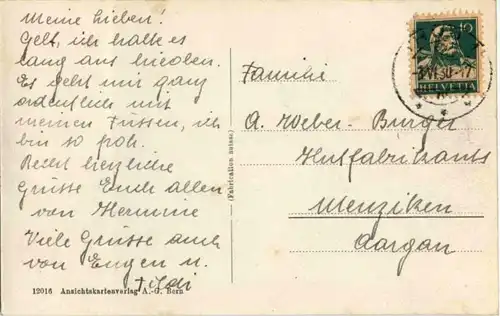 Meine Lieben!
Gelt, ich halte es
lang aus hier oben.
Es geht mir ganz
ordentlich mit
meinen Füssen, ich
bin so froh.
Recht herzliche
Grüsse Euch allen
von Hermine
Viele Grüsse auch
von Eugen u.
12016 Ansichtskartenverlag A.-G. Bern
(Fabrication suisse.)
10
HELVETIA
-3.VI.30.-17
Familie
A. Weber-Burger
Hutfabrikants
Menziken
Aargau